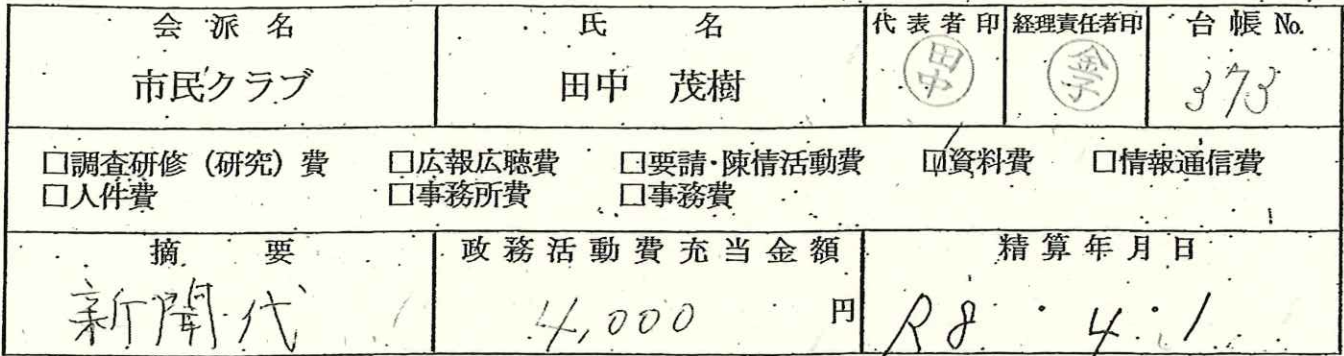 会派名 氏名 代表者印 経理責任者印 台帳No.
市民クラブ 田中 茂樹 田中 金子 373
□調査研修（研究）費 □広報広聴費 □要請・陳情活動費 ☑資料費 □情報通信費
□人件費 □事務所費 □事務費
摘要 政務活動費充当金額 精算年月日
新聞代 4,000 円 R8・4・1